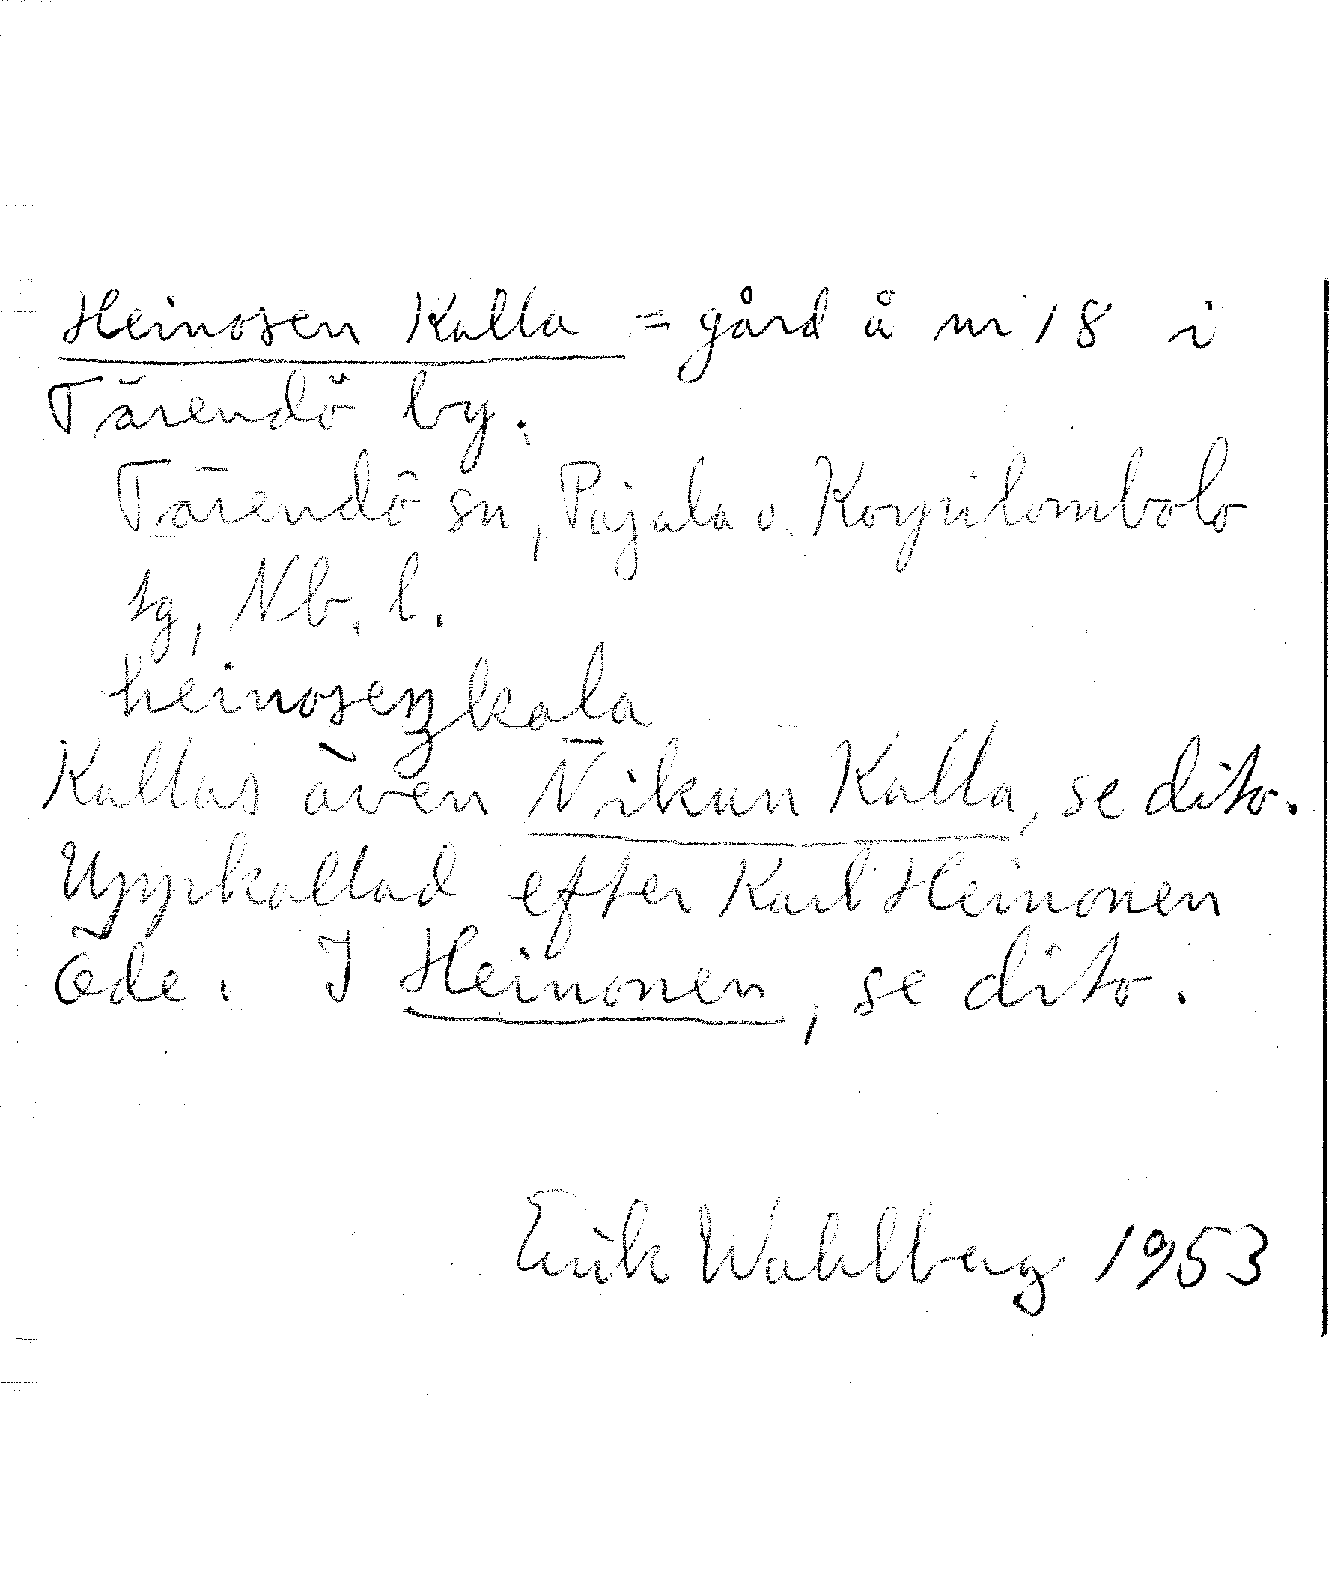 Heinosen Kalla = gård å nr 18 i
Tärendö by.
Tärendö sn, Pajala o. Korpilombolo
tg, Nb. l.
heinoseŋkala
Kallas även Nikun Kalla, se dito.
Uppkallad efter Karl Heinonen
Öde. I Heinonen, se dito.
Erik Wahlberg 1953